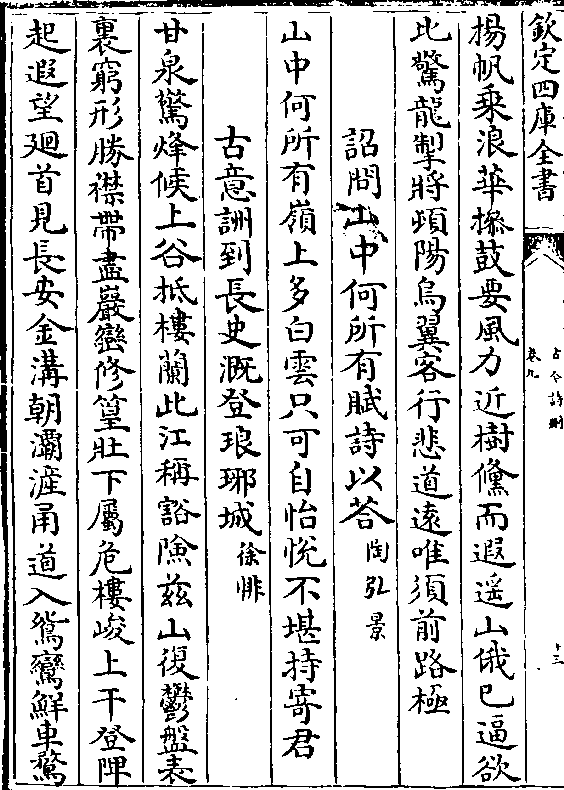 欽定四庫全書
古今詩刪
卷九
十三
揚帆乗浪華摐鼓要風力近樹儵而遐遥山俄已逼欲
此驚龍掣將頓陽烏翼客行悲道遠唯須前路極
詔問山中何所有賦詩以荅陶弘景
山中何所有嶺上多白雲只可自怡悦不堪持寄君
古意詶到長史溉登琅琊城徐悱
甘泉驚烽候上谷抵樓蘭此江稱谿險兹山復鬱盤表
裏窮形勝襟帶盡巖巒修篁壯下屬危樓峻上干登陴
起遐望廻首見長安金溝朝灞滻甬道入鴛鸞鮮車騖